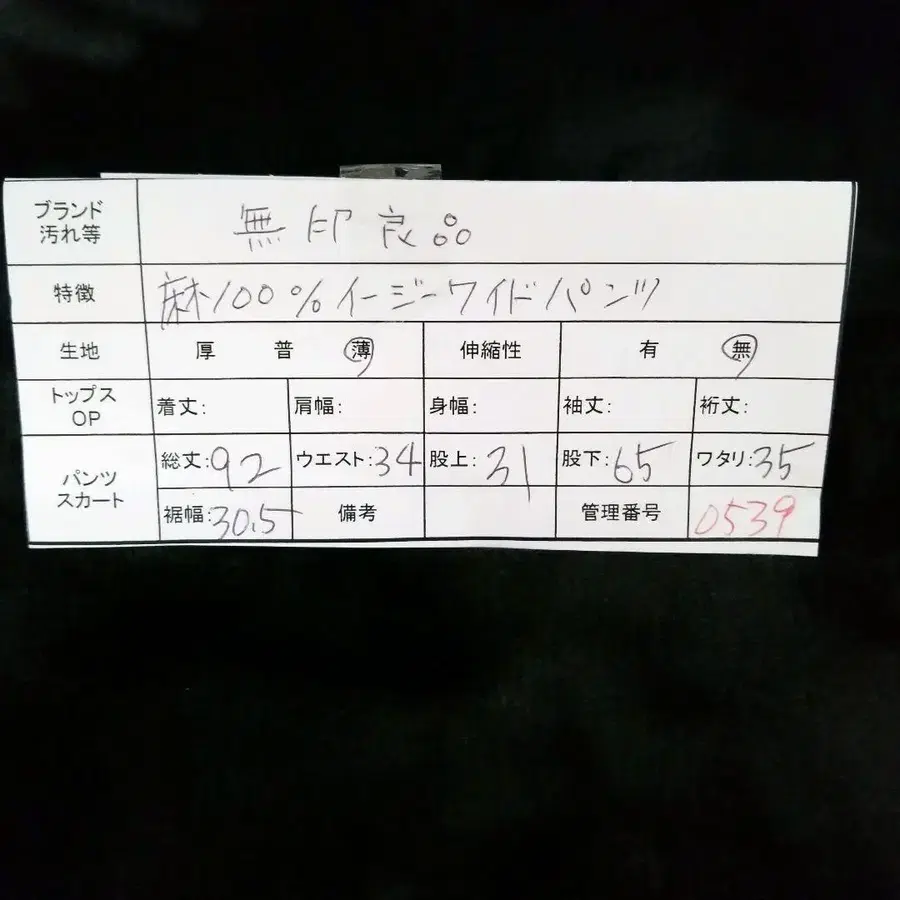 ブランド
汚れ等
無印良品
特徴
麻100%イージーワイドパンツ
生地 厚 普 薄 伸縮性 有 無
トップス
OP
着丈: 肩幅: 身幅: 袖丈: 裄丈:
パンツ
スカート
総丈:92 ウエスト:34 股上:31 股下:65 ワタリ:35
裾幅:30.5 備考 管理番号 0539